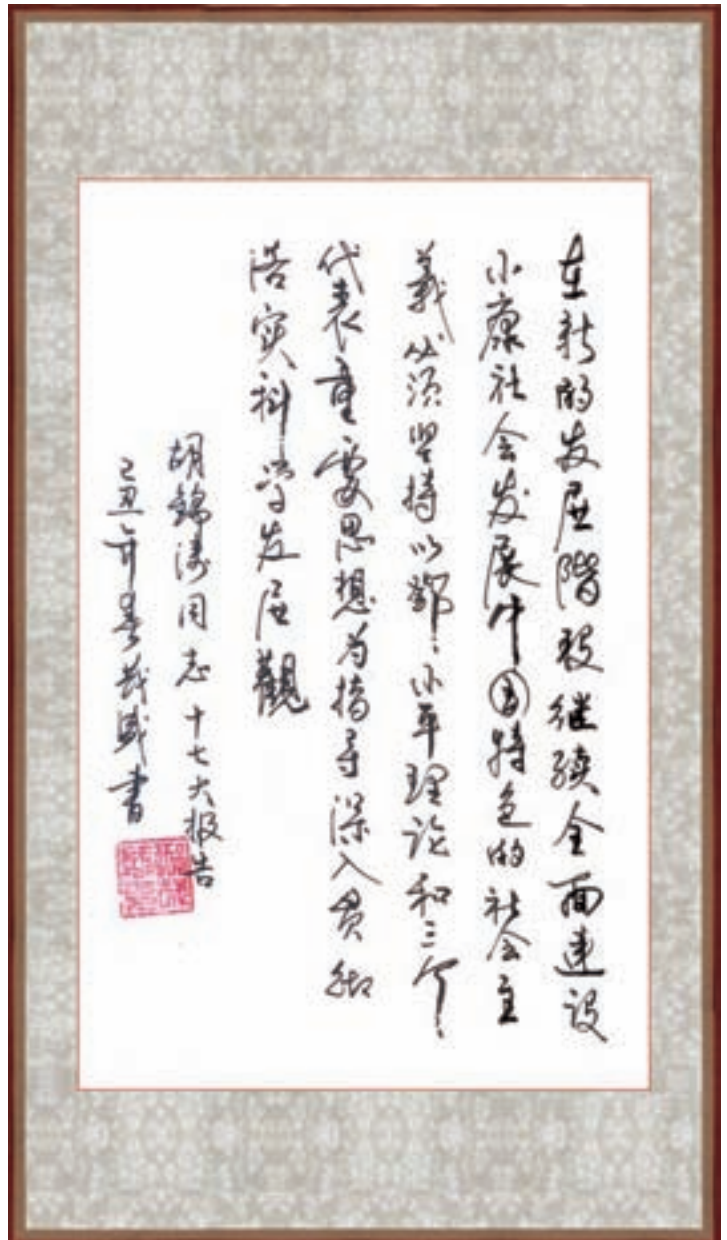 在新的发展階段继续全面建设
小康社会发展中国特色的社会主
義必须坚持以鄧小平理论和三个
代表重要思想为指导深入贯彻
落实科学发展觀
胡錦濤同志十七大报告
己丑年春茂盛書